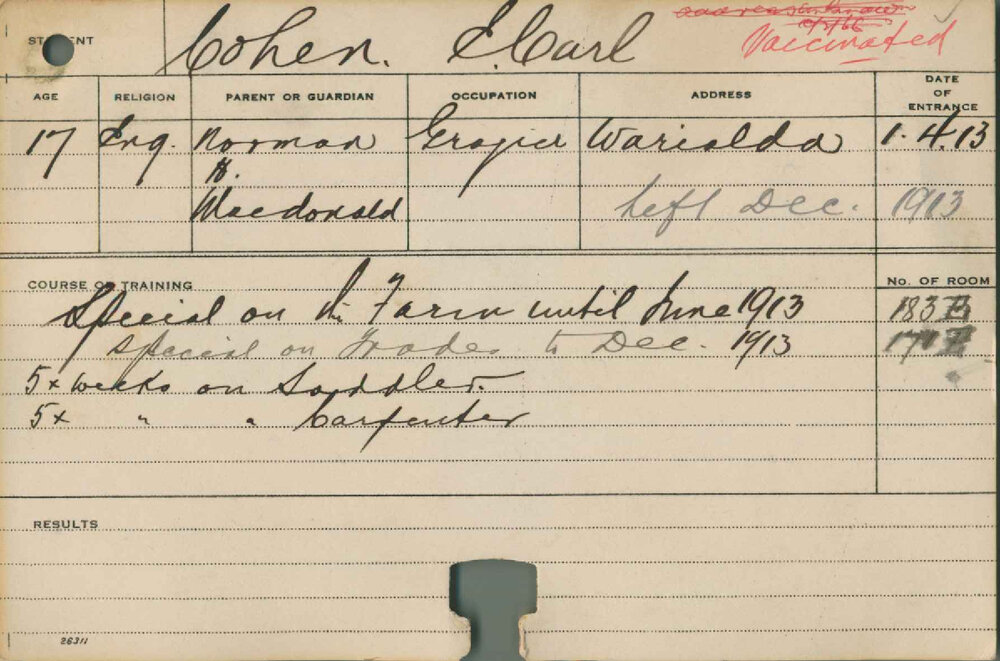 STUDENT Cohen. E. Carl
address unknown
Vaccinated
AGE RELIGION PARENT OR GUARDIAN OCCUPATION ADDRESS DATE OF ENTRANCE
17 Eng. Norman Grazier Warialda 1.4.13
H.
Macdonald Left Dec. 1913
COURSE OF TRAINING No. OF ROOM
Special on Farm until June 1913 183
Special on Trades to Dec. 1913 171
5x weeks on Saddler.
5x " " Carpenter
RESULTS
26311